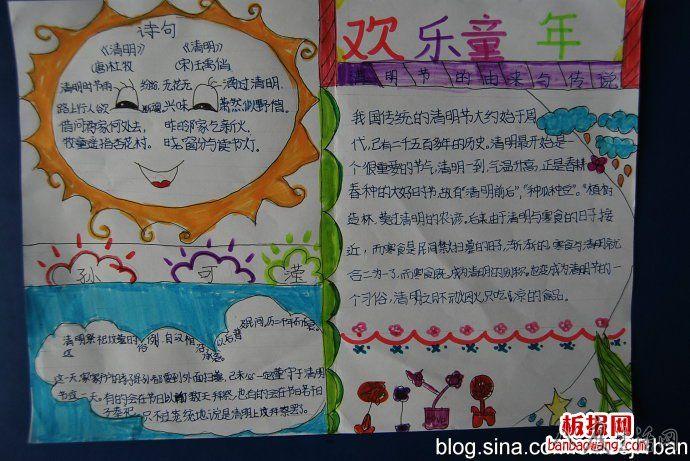 诗句
《清明》
(唐)杜牧
清明时节雨纷纷
路上行人欲断魂
借问酒家何处去,
牧童遥指杏花村。
《清明》
(宋)王禹偁
无花无酒过清明,
兴味萧然似野僧。
昨日邻家乞新火,
晓窗分与读书灯。
孙 可 滢
欢乐童年
清明节的由来与传说
我国传统的清明节大约始于周
代,已有二千五百多年的历史。清明最开始是一
个很重要的节气,清明一到,气温升高,正是春耕
春种的大好时节,故有"清明前后,种瓜种豆"。"植树
造林,莫过清明"的农谚。后来由于清明与寒食的日子接
近,而寒食是民间禁火扫墓的日子,渐渐的,寒食与清明就
合二为一了,而寒食既成为清明的别称,也变成为清明节的一
个习俗,清明之日不动烟火,只吃凉的食品。
清明祭祀坟墓的
这一天,家家户户的
清明
节这一天。有的会在节日
只不过笼统地说是清明上坟祭祭罢。
LOVE
板报网
banbaowang.com
blog.sina.co